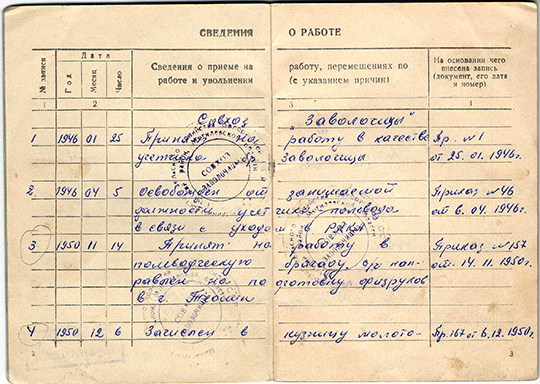 СВЕДЕНИЯ О РАБОТЕ
№ записи
Дата
Год
Месяц
Число
Сведения о приеме на работу, перемещениях по
работе и увольнении (с указанием причин)
На основании чего
внесена запись
(документ, его дата
и номер)
1 2 3 4
Совхоз "Заволочицы"
1 1946 01 25 Принят на работу в качестве Пр. №1
Заволочицы от 25.01.1946г.
2. 1946 04 5 Освобожден от занимаемой Приказ №46
должности от 6.04.1946г.
в связи с уходом в РККА
3 1950 11 14 Принят на работу в Приказ №157
полеводческую бригаду от 14.11.1950г.
в г.
4 1950 12 6 Зачислен в кузницу молото- Пр.167 от 6.12.1950г.
СОВХОЗ
2 3